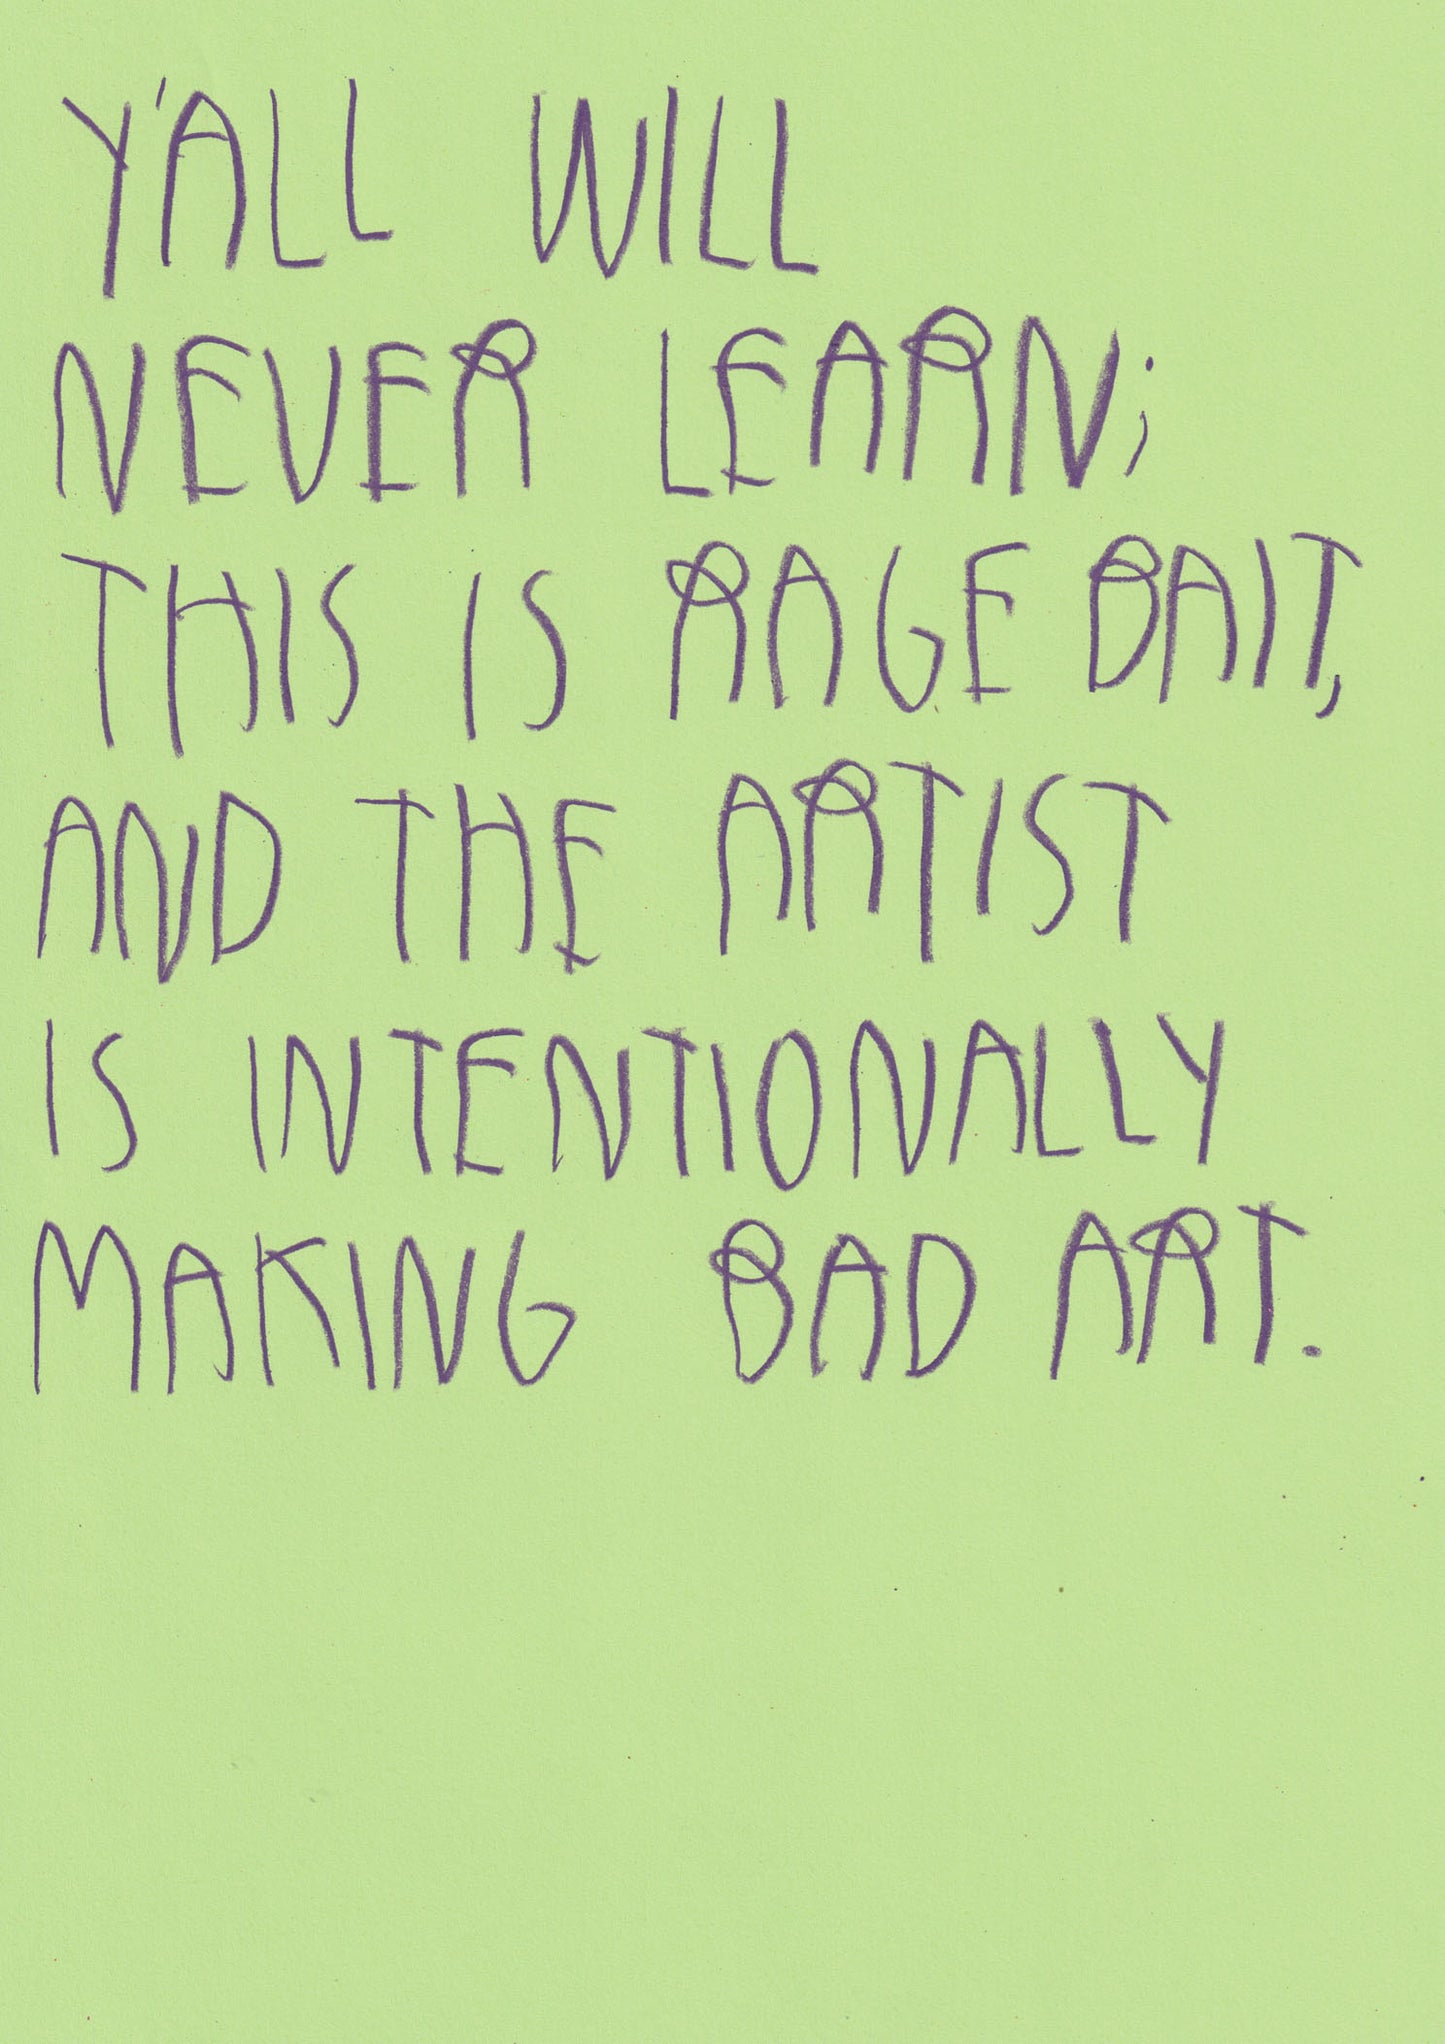 Y'ALL WILL
NEVER LEARN;
THIS IS RAGE BAIT,
AND THE ARTIST
IS INTENTIONALLY
MAKING BAD ART.